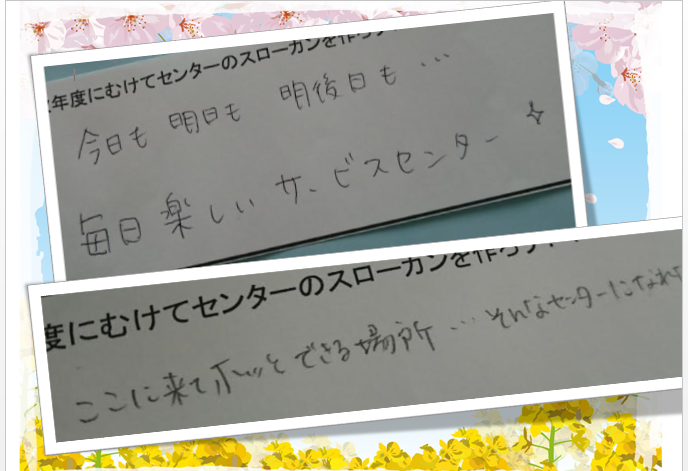 年度にむけてセンターのスローガンを作ろ
今日も 明日も 明後日も…
毎日楽しい サービスセンター
度にむけてセンターのスローガンを作ろ
ここに来てホッとできる場所…そんなセンターになれ